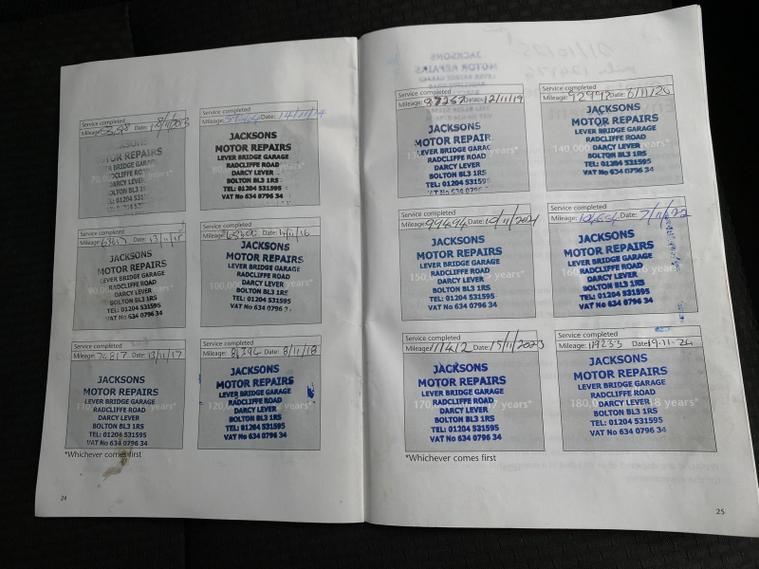 Service completed
Mileage: Date: 18/11/2013
JACKSONS
MOTOR REPAIRS
LEVER BRIDGE GARAGE
RADCLIFFE ROAD
DARCY LEVER
BOLTON BL3 1RS
TEL: 01204 531595
Service completed
Mileage: Date: 14/11/14
JACKSONS
MOTOR REPAIRS
LEVER BRIDGE GARAGE
RADCLIFFE ROAD
DARCY LEVER
BOLTON BL3 1RS
TEL: 01204 531595
VAT No 634 0796 34
Service completed
Mileage: Date: 13/11/15
JACKSONS
MOTOR REPAIRS
LEVER BRIDGE GARAGE
RADCLIFFE ROAD
DARCY LEVER
BOLTON BL3 1RS
TEL: 01204 531595
VAT No 634 0796 34
Service completed
Mileage: Date: /11/16
JACKSONS
MOTOR REPAIRS
LEVER BRIDGE GARAGE
RADCLIFFE ROAD
DARCY LEVER
BOLTON BL3 1RS
TEL: 01204 531595
VAT No 634 0796 34
Service completed
Mileage: 74817 Date: 13/11/17
JACKSONS
MOTOR REPAIRS
LEVER BRIDGE GARAGE
RADCLIFFE ROAD
DARCY LEVER
BOLTON BL3 1RS
TEL: 01204 531595
VAT No 634 0796 34
Service completed
Mileage: 81394 Date: 8/11/18
JACKSONS
MOTOR REPAIRS
LEVER BRIDGE GARAGE
RADCLIFFE ROAD
DARCY LEVER
BOLTON BL3 1RS
TEL: 01204 531595
VAT No 634 0796 34
*Whichever comes first
24
Service completed
Mileage: 87367 Date: 12/11/19
JACKSONS
MOTOR REPAIRS
LEVER BRIDGE GARAGE
RADCLIFFE ROAD
DARCY LEVER
BOLTON BL3 1RS
TEL: 01204 531595
VAT No 634 0796 34
Service completed
Mileage: 92992 Date: 6/11/20
JACKSONS
MOTOR REPAIRS
LEVER BRIDGE GARAGE
RADCLIFFE ROAD
DARCY LEVER
BOLTON BL3 1RS
TEL: 01204 531595
VAT No 634 0796 34
Service completed
Mileage: 99494 Date: 10/11/2021
JACKSONS
MOTOR REPAIRS
LEVER BRIDGE GARAGE
RADCLIFFE ROAD
DARCY LEVER
BOLTON BL3 1RS
TEL: 01204 531595
VAT No 634 0796 34
Service completed
Mileage: Date: 7/11/22
JACKSONS
MOTOR REPAIRS
LEVER BRIDGE GARAGE
RADCLIFFE ROAD
DARCY LEVER
BOLTON BL3 1RS
TEL: 01204 531595
VAT No 634 0796 34
Service completed
Mileage: 111412 Date: 15/11/2023
JACKSONS
MOTOR REPAIRS
LEVER BRIDGE GARAGE
RADCLIFFE ROAD
DARCY LEVER
BOLTON BL3 1RS
TEL: 01204 531595
VAT No 634 0796 34
Service completed
Mileage: 119233 Date: 19-11-24
JACKSONS
MOTOR REPAIRS
LEVER BRIDGE GARAGE
RADCLIFFE ROAD
DARCY LEVER
BOLTON BL3 1RS
TEL: 01204 531595
VAT No 634 0796 34
*Whichever comes first
25